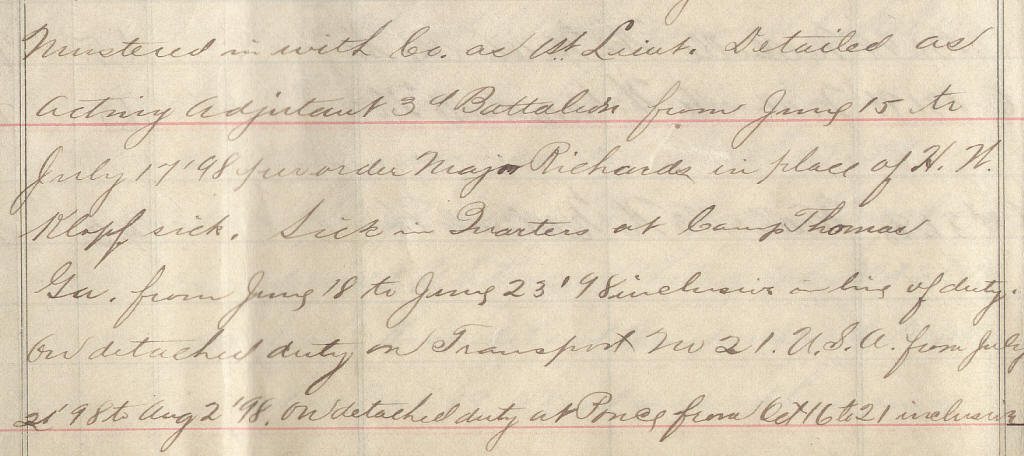 Mustered in with Co. as 1st Lieut. Detailed as
Acting Adjutant 3d Battalion from June 15 to
July 17 '98 per order Major Richards in place of H. W.
Klopf sick. Sick in Quarters at Camp Thomas
Ga. from June 18 to June 23 '98 inclusive in line of duty.
On detached duty on Transport No 21. U.S.A. from July
'98 to Aug 2 '98. On detached duty at Ponce from Oct 16 to 21 inclusive